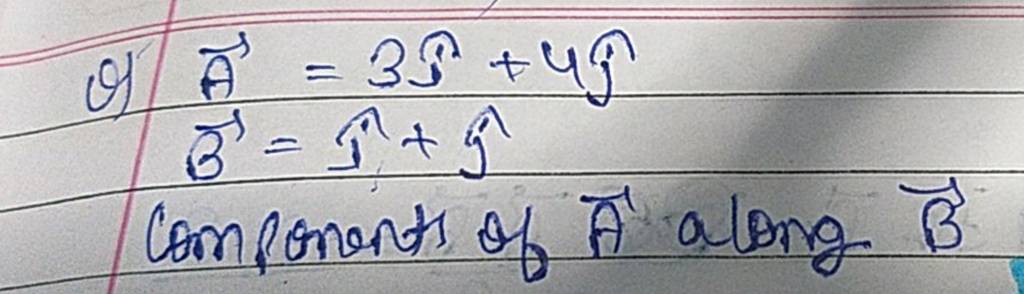 Q) A⃗ = 3î + 4ĵ
B⃗ = î + ĵ
Components of A⃗ along B⃗